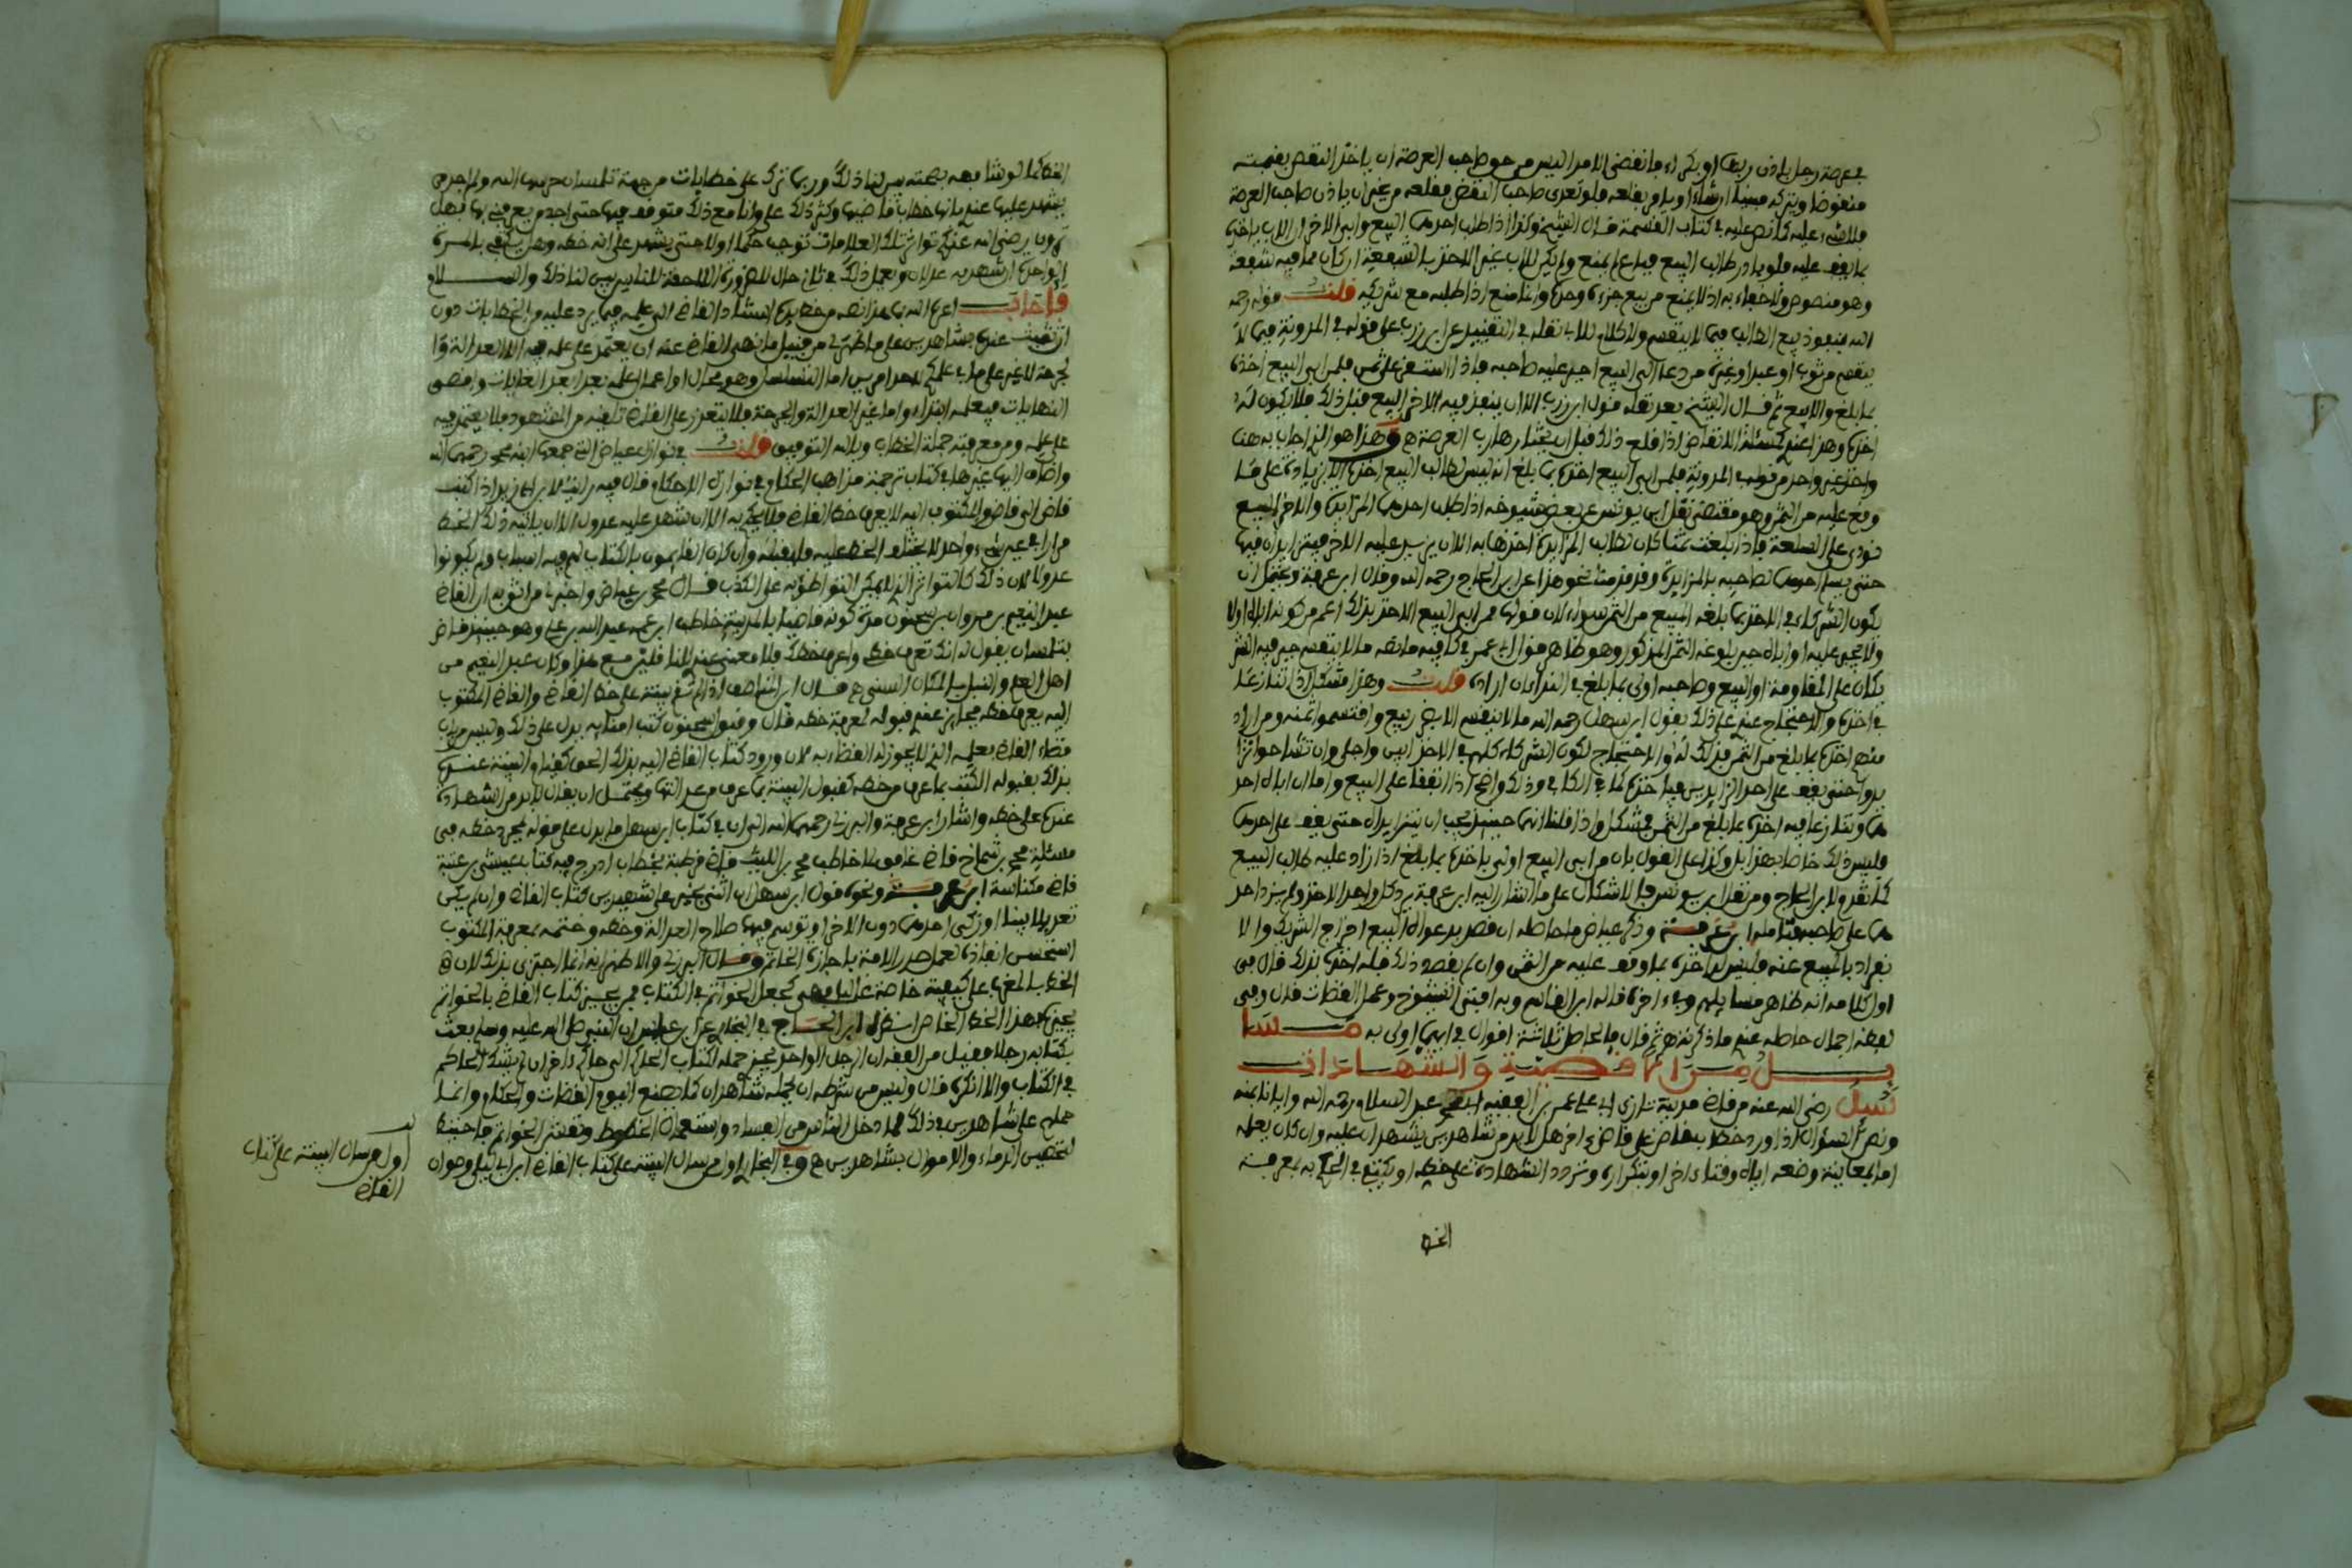 في عرصة رجل باذن ربها او بكراء فانقضى الامد اليس من حق صاحب العرصة ان ياخذ النقض بقيمته
منقوضا ويتركه مبنيا ان شاء او يامر بقلعه فلو تعدى صاحب النقض فقلعه من غير ان ياذن صاحب العرصة
فلا شيء عليه كما نص عليه في كتاب القسمة قال الشيخ وكذا اذا طلب احدهما البيع وابى الاخر الا ان ياخذ
بما يقف عليه فلو بادر طالب البيع فباع لم يمنع ولم يكن للاب غير الاخذ بالشفعة ان كان مما فيه شفعة
وهو منصوص ولا خفاء به اذ لا يمنع من بيع جزءه وحده وانما منع اذا طلبه مع شريكه قلت قوله رحمه
الله فينفوذ بيع الطالب فيما لا ينقسم ولا كلام للاب نقله في التقييد عن ابن رزب على قوله في المدونة فيما لا
ينقسم من ثوب او عبد او غيره من دعا الى البيع اجبر عليه صاحبه فاذا استقر على ثمن فلمن ابى البيع اخذه
بما بلغ والا بيع ثم قال الشيخ بعد نقله قول ابن رزب الا ان ينفذ فيه الاخر البيع قبل ذلك فلا يكون له
اخذه وهذا عندي كمسئلة الانقاض اذا قلع ذلك قبل ان يختار رب العرصة ه وهذا هو الذي اجاب به هنا
واخذ غير واحد من قولها في المدونة فلمن ابى البيع اخذه بما بلغ انه ليس لطالب البيع اخذه الا بزيادة على ما
وقع عليه من الثمن وهو مقتضى نقل ابن يونس عن بعض شيوخه اذا طلب احدهما المزايدة والاخر البيع
نودي على السلعة فاذا بلغت ثمنا كان لطالب المزايدة اخذها به الا ان يزيد عليه الاخر فيتزايدان فيها
حتى يسلم احدهما لصاحبه بالمزايدة وقد قدمنا نحو هذا عن ابن الحاج رحمه الله وقال ابن عرفة ويحتمل ان
يكون الشركاء في الاخذ بما بلغه المبيع من الثمن سواء لان قولها من ابى البيع الاخذ بذلك اعم من كونه اباه اولا
ولا يجبر عليه او اباه حين بلوغه الثمن المذكور وهو ظاهر قول ابي عمر في كافيه ما نصه ما لا ينقسم جبر فيه الشر
يكان على المقاومة او البيع وصاحبه اولى بما بلغ في النداء ان اراده قلت وهذا مشكل اذا تنازعا
في اخذه والاحتجاج عندي على ذلك بقول ابن سهل رحمه الله ما لا ينقسم الا بضرر بيع واقتسموا ثمنه ومن اراد
منهم اخذه بما بلغ من الثمن فذلك له اولا الاحتجاج لكون الشركاء كلهم في الاخذ ابين واجلى وان تشاحوا تزا
يدوا حتى يقف على احد الزايدين فياخذه كما في الكافي وذلك واضح اذا اتفقا على البيع واما ان اباه احد
هما وتنازعا فيه اخذه بما بلغ من الثمن فمشكل واذا قلنا انهما حينئذ يجب ان يتزايدا حتى يقف على احدهما
فليس ذلك خاصا بهذا بل وكذا على القول بان من ابى البيع اولى باخذه بما بلغ اذا زاد عليه طالب البيع
كما تقدم لابن الحاج ومن نقل ابن يونس فالاشكال على ما اشار اليه ابن عرفة يرد كل واحد الاخذ ولم يزد احد
هما على صاحبه فتامله ابن عرفة وذكر عياض ما حاصله ان قصد بدعواه البيع اخراج الشريك والا
نفراد بالمبيع عنه فليس له اخذه بما وقف عليه من الثمن وان لم يقصد ذلك فله اخذه بذلك قال في
اول كلامه انه ظاهر مسايلهم وفي اخره قاله ابن القاسم وبه افتى الشيوخ وعمل القضاة قال وفي
بعضه اجمال حاصله عندي ما ذكرته ثم قال فالحاصل ثلاثة اقوال في ايهما اولى به مسا
يل من الاقضية والشهادات
سئل رضي الله عنه من قاضي مدينة تازى ابي علي عمر بن الفقيه عبد السلام رحمه الله وايانا بمنه
ونص السؤال اذا ورد خطاب قاض على قاض اخر هل لابد من شاهدين يشهدان عليه وان كان يعلمه
اما بمعاينة وضعه اياه وقتا ءاخر او بتكراره وتردد الشهادة على خطه او يكتفى في الحكم به بمعرفة
الخط
الخط كما لو شافهه بصحته بين لنا ذلك وربما ترد على خطابات من جهة تلمسان حرسها الله ولم اجد من
يشهد عليها عندي بانها خطاب قاضيها وكثر ذلك علي وانا مع ذلك متوقف فيها حتى اجد من يعرفني بها فهل
ترون رضي الله عنكم تواتر تلك العلامات توجب حكما اولا حتى يشهد على انه خطه وهل يكفي بالمرة
الواحدة ان شهد به عدلان ويعمل ذلك في ثاني حال للضرورة اللاحقة للناس بين لنا ذلك والسلام
فاجاب اعزه الله بما هذا نصه من خط يده استناد القاضي الى علمه فيما يرد عليه من الخطابات دون
ان تثبت عنده بشاهدين على ما ظهر لي من قبيل ما نهي القاضي عنه ان يعتمد على علمه فيه الا العدالة وا
لجرحة لا غير على ما في علمكم لاحد امرين اما التسلسل وهو محال او اعمال علمه بعد ابعد الغايات واقصى
النهايات فيعلمه ابتداء واما غير العدالة والجرحة فلا يتعذر على القاضي تلقيه من الشهود فلا يعتمد فيه
على علمه ومن معرفته جملة الخطاب وبالله التوفيق قلت في نوازل عياض التي جمعها ابنه محمد رحمهما الله
واضاف اليها غيرها في كتاب ترجمة مذاهب الحكام في نوازل الاحكام قال فيه رايت لابن ابي زيد اذا كتب
قاض الى قاض والمكتوب اليه لا يعرف خط القاضي فلا يحكم به الا ان شهد عليه عدول الا ان ياتيه ذلك الخط
مرارا في غير شيء واحد لا يختلف الخط عليه فليقبله وان كان القايمون بالكتاب لهم فيه اسباب ولم يكونوا
عدولا لان ذلك كالتواتر الذي لا يمكن التواطؤ به على الكذب قال محمد بن عياض واخبرنا من اثق به ان القاضي
عبد المنعم بن مروان بن سمجون مدة كونه قاضيا بالمرية خاطب ابن عمه عبد الله بن علي وهو حينئذ قاض
بتلمسان يقول له انك تعرف خطي واعرف خطك فلا معنى عندي للتافيز مع هذا وكان عبد المنعم من
اهل العلم والنبل بالمكان السني ه قال ابن المناصف اذا لم تقم بينة على خط القاضي والقاضي المكتوب
اليه يعرف خطه فجايز عندي قبوله لمعرفة خطه قال وقبول سحنون كتب امنايه يدل على ذلك وليس من باب
قضاء القاضي بعلمه الذي لا يجوز له القضاء به لان ورود كتاب القاضي اليه بذلك الحق كقيام البينة عنده
بذلك بقبوله الكتب بما عرف من خطه كقبول البينة بما عرف من عدالتها ويحتمل ان يقال لابد من الشهادة
عنده على خطه واشار ابن عرفة والبرزلي رحمهما الله الى ان في كتاب ابن سهل ما يدل على قوله بمجرد خطه في
مسئلة محمد بن شماخ قاضي غافق لما خاطب محمد بن الليث قاضي قرطبة بخطاب ادرج فيه كتاب عيسى بن عتبة
قاضي مكناسة ابن عرفة ونحوه قول ابن سهل ان اثنى بخير على شهيدين بكتاب القاضي وان لم يكن
تعديلا بينا او زكى احدهما دون الاخر او توسم فيهما صلاح العدالة وخطه وختمه بمعرفة المكتوب
استحسن انفاذه لعمل صدر الامة باجازة الخاتم وقال البرزلي والاظهر انه انما اجتزي بذلك لان
الخط بالمغرب على كيفية خاصة غالبا فهي كجعل الخواتم في الكتاب فمن يجيز كتاب القاضي بالخواتم
يجيزه بهذا الخط الخاص انتهى ابن الحاج في البخاري عن ابن عباس ان النبي صلى الله عليه وسلم بعث
بكتابه رجلا فقيل من الفقه ان الرجل الواحد يجزي حمله لكتاب الحاكم الى حاكم اخر ان لم يشك الحاكم
في الكتاب ولا انكره قال وليس من شرطه ان يحمله شاهدان كما يصنع اليوم القضاة والحكام وانما
حملهم على شاهدين في ذلك لما دخل الناس من الفساد واستعمال الخطوط ونقش الخواتم فاحتيط
لتحصين الدماء والاموال بشاهدين ه وفي البخاري اول من سال البينة على كتاب القاضي ابن ابي ليلى وسوار
اول من سال البينة على كتاب
القاضي